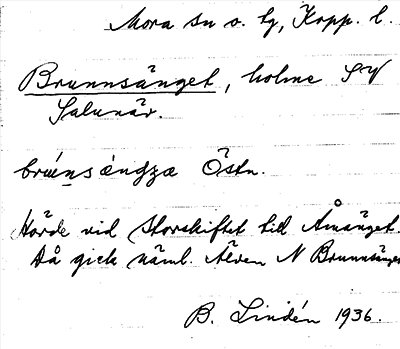 Mora sn o. tg, Kopp. l.
Brunnsänget, holme SV
Salunär.
brúns éngʒæ Östn.
Hörde vid Storskiftet till Åmänget.
Då gick näml. Älven N Brunnsänget
B. Lindén 1936.